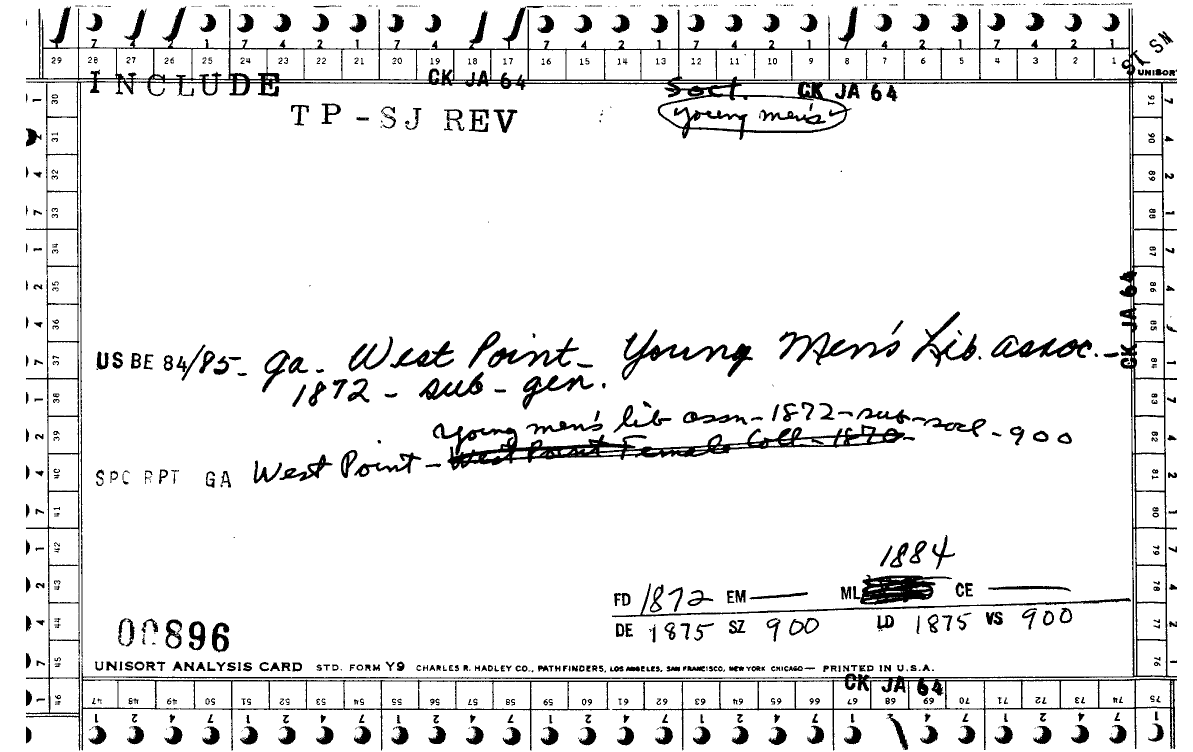 7 4 2 1 7 4 2 1 7 4 2 1 7 4 2 1 7 4 2 1 7 4 2 1 7 4 2 1
29 28 27 26 25 24 23 22 21 20 19 18 17 16 15 14 13 12 11 10 9 8 7 6 5 4 3 2 1
ST SN
UNISORT
INCLUDE CK JA 64 Soct. CK JA 64
TP-SJ REV young men's
30 31 32 33 34 35 36 37 38 39 40 41 42 43 44 45 46
91 90 89 88 87 86 85 84 83 82 81 80 79 78 77 76
CK JA 64
US BE 84/85- Ga. West Point- Young Men's Lib. Assoc.-
1872 - sub - gen.
young men's lib assn-1872-sub-socl-900
SPC RPT GA West Point - West Point Female Coll-1870-
1884
FD 1872 EM — ML CE —
DE 1875 SZ 900 LD 1875 VS 900
00896
UNISORT ANALYSIS CARD STD. FORM Y9 CHARLES R. HADLEY CO., PATHFINDERS, LOS ANGELES, SAN FRANCISCO, NEW YORK CHICAGO— PRINTED IN U.S.A.
CK JA 64
47 48 49 50 51 52 53 54 55 56 57 58 59 60 61 62 63 64 65 66 67 68 69 70 71 72 73 74 75
1 2 4 7 1 2 4 7 1 2 4 7 1 2 4 7 1 2 4 7 1 2 4 7 1 2 4 7 1